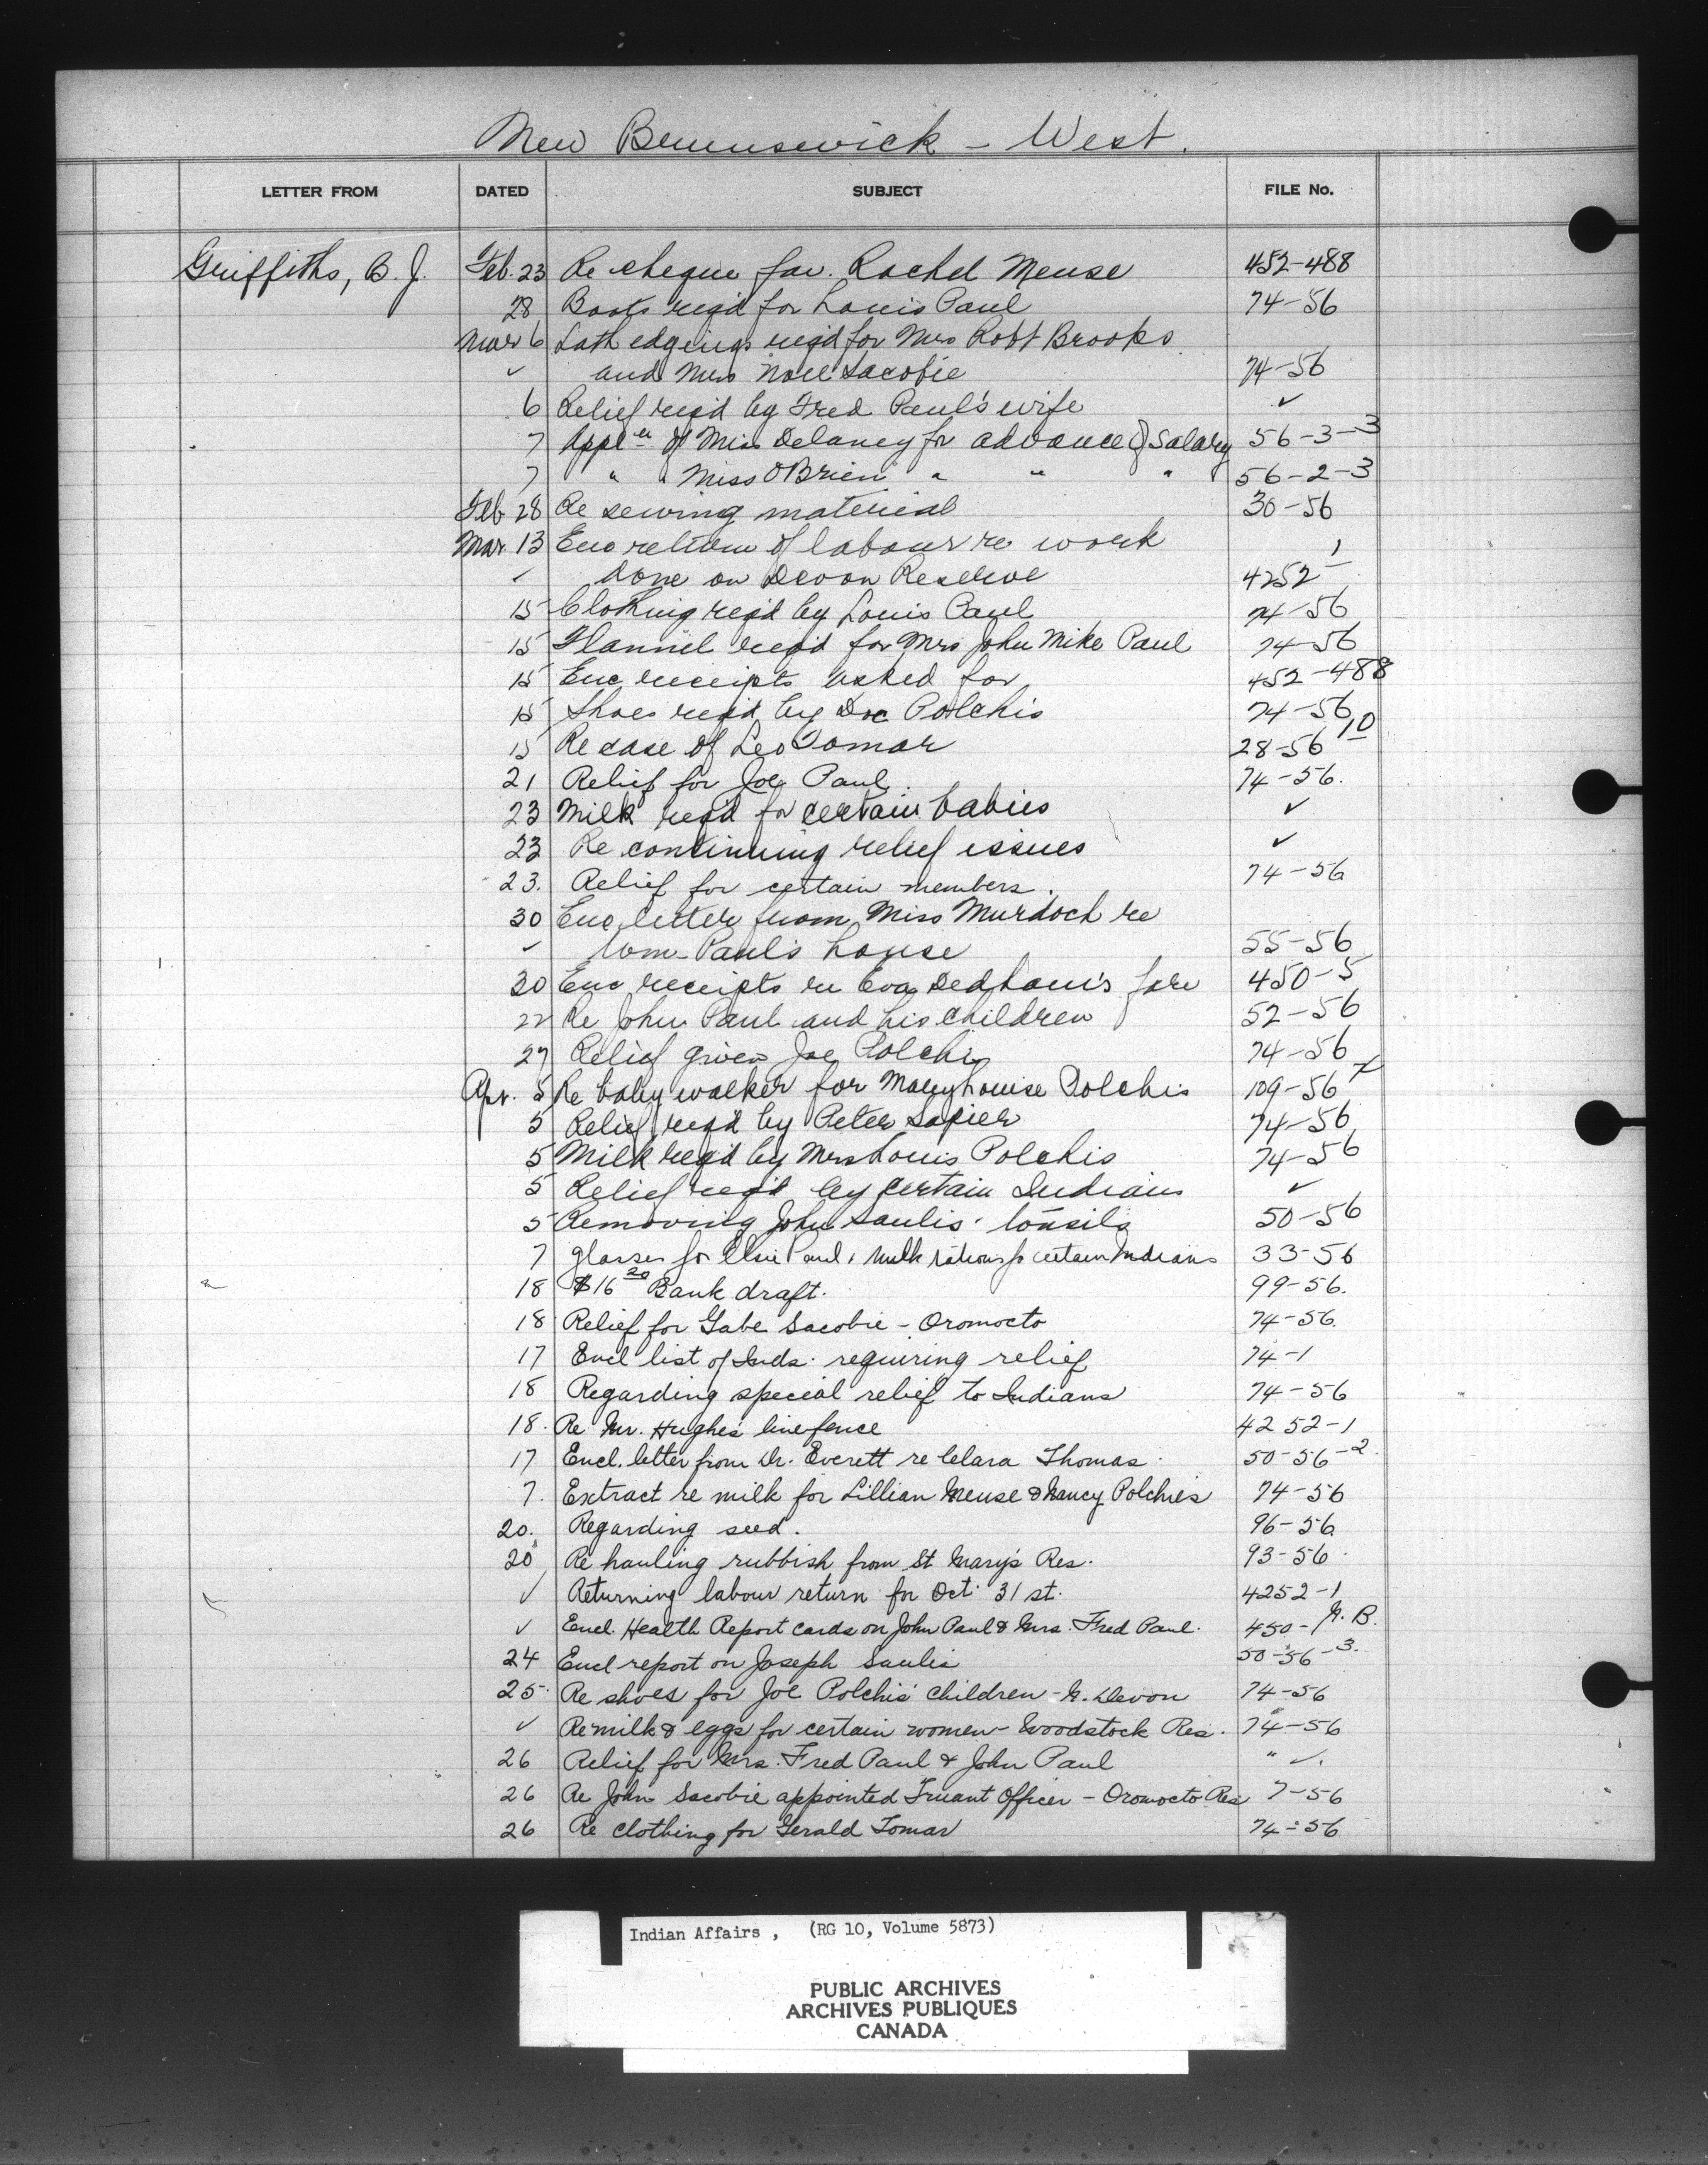 New Brunswick - West.
LETTER FROM DATED SUBJECT FILE No.
Griffiths, B. J. Feb. 23 Re cheque fav. Rachel Meuse 452-488
28 Boots reqd for Louis Paul 74-56
Mar 6 Lath edgings reqd for Mrs Robt Brooks
✓ and Mrs Noel Sacobie 74-56
6 Relief reqd by Fred Paul's wife ✓
7 Applen of Miss Delaney for advance of Salary 56-3-3
7 " " Miss O'Brien " " " 56-2-3
Feb 28 Re sewing material 30-56
Mar. 13 Enc return of labour re work
✓ done on Devon Reserve 4252-1
15 Clothing reqd by Louis Paul 74-56
15 Flannel reqd for Mrs John Mike Paul 74-56
15 Enc receipts asked for 452-488
15 Shoes reqd by Doc Polchis 74-56
15 Re case of Leo Tomar 28-56-10
21 Relief for Joe Paul 74-56.
23 Milk reqd for certain babies ✓
23 Re continuing relief issues ✓
23. Relief for certain members. 74-56
30 Enc letter from Miss Murdoch re
✓ Wm Paul's house 55-56
30 Enc receipts re Eva Dedham's fare 450-5
22 Re John Paul and his children 52-56
27 Relief given Joe Polchis 74-56
Apr. 5 Re baby walker for Mary Louise Polchis 109-56
5 Relief reqd by Peter Sapier 74-56
5 Milk reqd by Mrs Louis Polchis 74-56
5 Relief reqd by certain Indians ✓
5 Removing John Saulis' tonsils 50-56
7 glasses for Elsie Paul, milk rations for certain Indians 33-56
18 $16 20 Bank draft. 99-56.
18 Relief for Gabe Sacobie - Oromocto 74-56.
17 Encl list of Inds. requiring relief 74-1
18 Regarding special relief to Indians 74-56
18. Re Mr. Hughes line fence 4252-1
17 Encl. letter from Dr. Everett re Clara Thomas. 50-56-2.
7. Extract re milk for Lillian Meuse & Nancy Polchies 74-56
20. Regarding seed. 96-56
20 Re hauling rubbish from St Mary's Res. 93-56.
✓ Returning labour return for Oct. 31st. 4252-1
✓ Encl. Health Report cards on John Paul & Mrs. Fred Paul. 450-1 N.B.
24 Encl report on Joseph Saulis 50-56-3.
25. Re shoes for Joe Polchis' children - N. Devon 74-56
✓ Re milk & eggs for certain women - Woodstock Res. 74-56
26 Relief for Mrs. Fred Paul & John Paul " ✓.
26 Re John Sacobie appointed Truant Officer - Oromocto Res 7-56
26 Re clothing for Gerald Tomar 74-56
Indian Affairs , (RG 10, Volume 5873)
PUBLIC ARCHIVES
ARCHIVES PUBLIQUES
CANADA